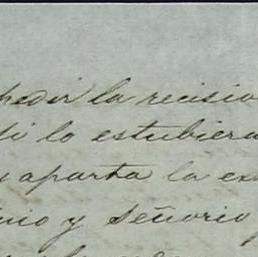 pedir la recisio
di lo estubiera
y aparta la ex
inio y señorio